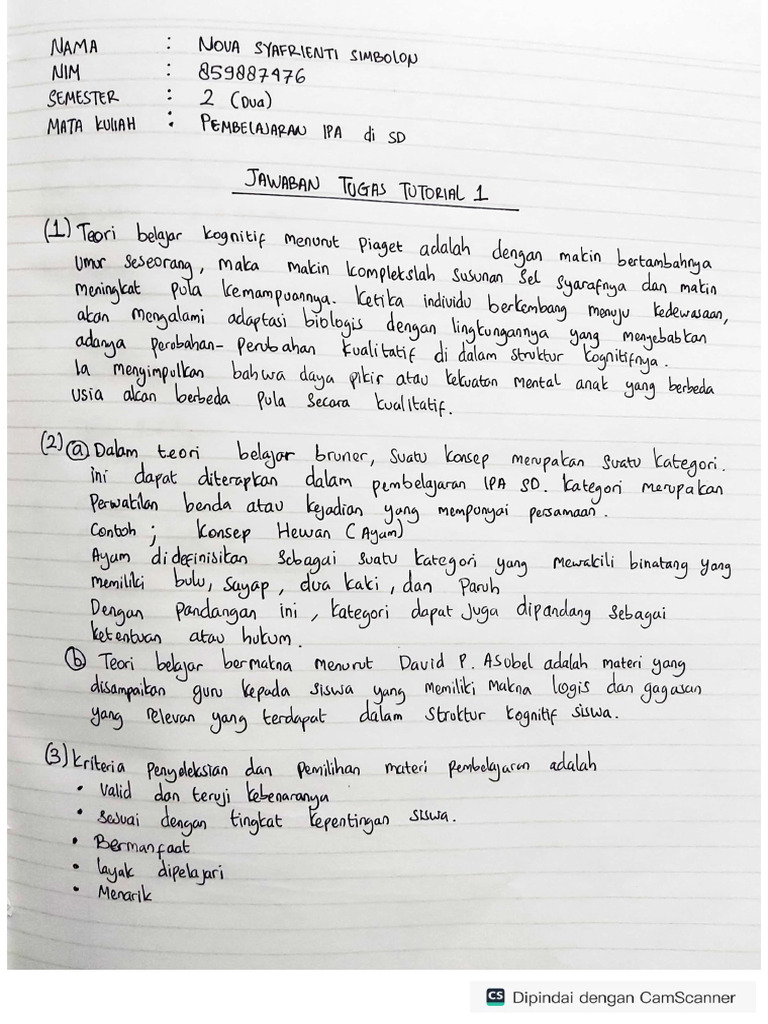 NAMA : NOVA SYAFRIENTI SIMBOLON
NIM : 859887476
SEMESTER : 2 (Dua)
MATA KULIAH : PEMBELAJARAN IPA di SD
JAWABAN TUGAS TUTORIAL 1
(1) Teori belajar kognitif menurut Piaget adalah dengan makin bertambahnya
umur seseorang, maka makin komplekslah susunan sel syarafnya dan makin
meningkat pula kemampuannya. Ketika individu berkembang menuju kedewasaan,
akan mengalami adaptasi biologis dengan lingkungannya yang menyebabkan
adanya perobahan-perubahan kualitatif di dalam struktur kognitifnya.
Ia mengimpulkan bahwa daya pikir atau kekuatan mental anak yang berbeda
usia akan berbeda pula secara kualitatif.
(2) (a) Dalam teori belajar bruner, suatu konsep merupakan suatu kategori.
ini dapat diterapkan dalam pembelajaran IPA SD. Kategori merupakan
Perwakilan benda atau kejadian yang mempunyai persamaan.
Contoh ; Konsep Hewan (Ayam)
Ayam didefinisikan sebagai suatu kategori yang mewakili binatang yang
memiliki bulu, sayap, dua kaki, dan Paruh
Dengan pandangan ini, kategori dapat juga dipandang sebagai
ketentuan atau hukum.
(b) Teori belajar bermakna menurut David P. Asubel adalah materi yang
disampaikan guru kepada siswa yang memiliki makna logis dan gagasan
yang relevan yang terdapat dalam struktur kognitif siswa.
(3) Kriteria penyeleksian dan pemilihan materi pembelajaran adalah
• Valid dan teruji kebenaranya
• Sesuai dengan tingkat kepentingan siswa.
• Bermanfaat
• layak dipelajari
• Menarik
CS Dipindai dengan CamScanner